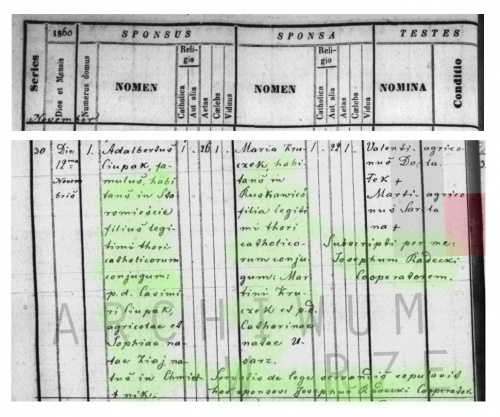 1860 SPONSUS SPONSA TESTES
Series
Dies et Mensis
Numerus domus
NOMEN
Religio
Catholica
Aut alia
Aetas
Caelebs
Viduus
NOMEN
Religio
Catholica
Aut alia
Aetas
Caelebs
Vidua
NOMINA
Conditio
November
Die
12ma
Novem
bris
1.
Adalbertus
Ciupak, fa-
mulus, habi
tans in Sta
romieście
filius legi-
timi thori
catholicorum
conjugum:
p.d. Casimi
ri Ciupak,
agricolae et
Sophiae na
tae Ziaj na
tus in Chmiel
nik.
1 26 1
Maria Kru
czek, habi-
tans in
Ruskawies
filia legiti
mi thori
catholico-
rum conju
gum: Mar
tini Kru
czek et p.d.
Catharinae
natae
1. 22 1.
Valenti-
nus
agrico
la
Marti-
nus
agrico
la
Subscripti per me:
Josephum Radecki
Cooperatorem.
Servatis de lege servandis copulavit
hos sponsos Josephus Radecki Cooperator.
ARCHIWUM
W RZE